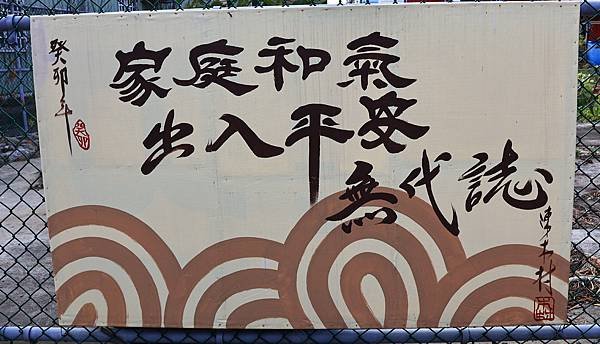 癸卯年
家庭和氣
出入平安
無代誌